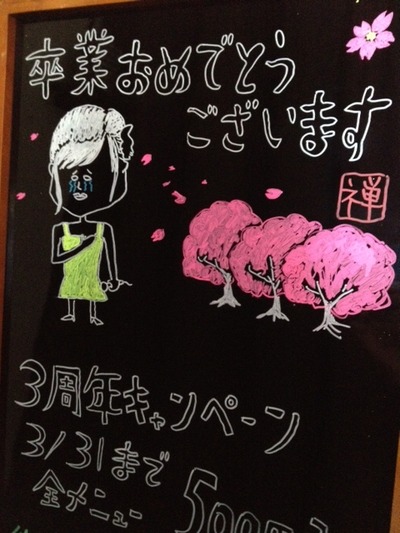 卒業おめでとう
ございます
禅
3周年キャンペーン
3/31まで
全メニュー 500円